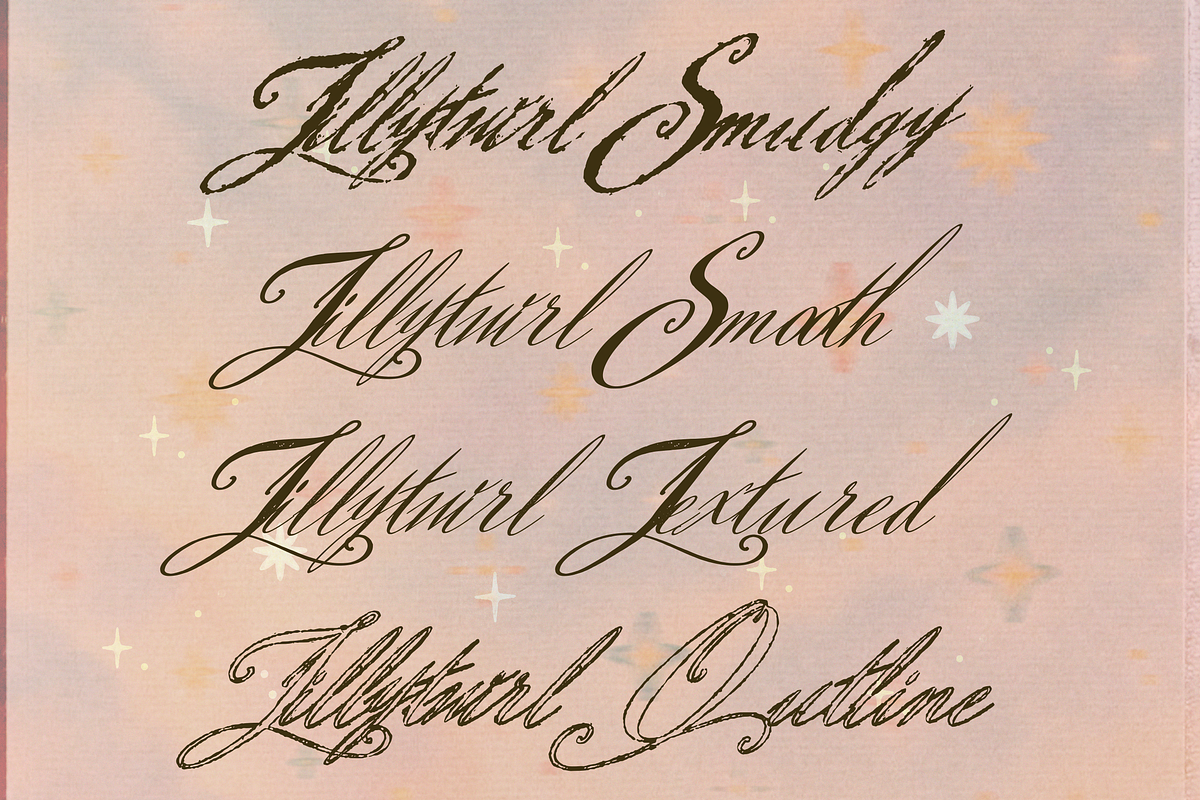 Tillytwirl Smudgy
Tillytwirl Smooth
Tillytwirl Textured
Tillytwirl Outline